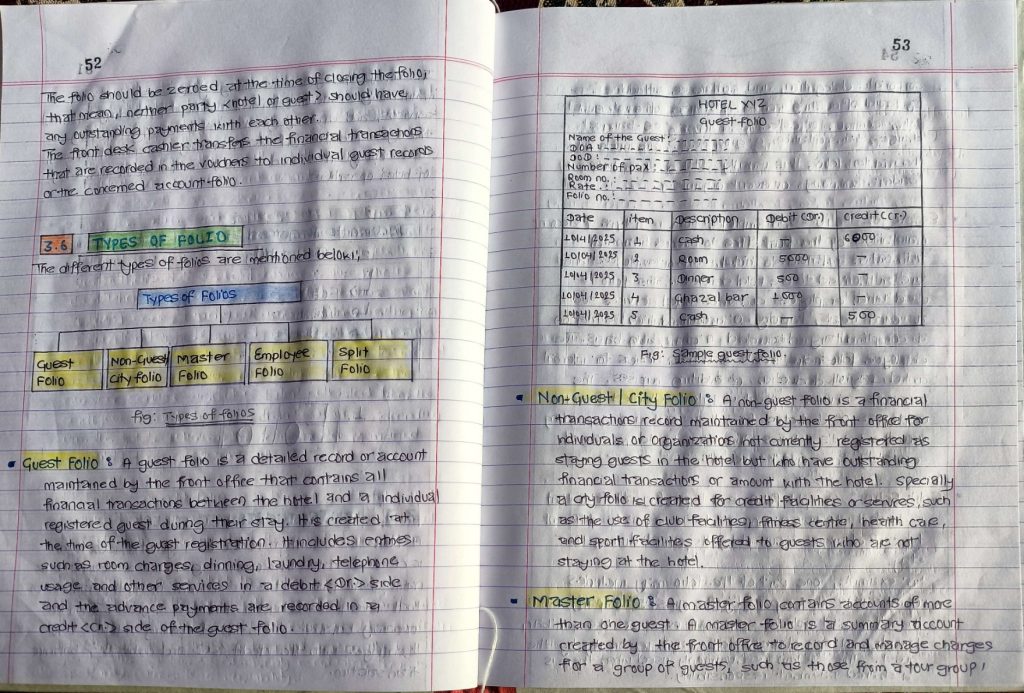 52
The folio should be zeroed, at the time of closing the folio,
that mean, neither party <hotel or guest>, should have
any outstanding payments with each other.
The front desk cashier transfers the financial transactions
that are recorded in the vouchers to individual guest records
or the concerned account-folio.
3.6 TYPES OF FOLIO
The different types of folios are mentioned below;
Types of Folios
Guest Folio
Non-Guest City folio
Master Folio
Employee Folio
Split Folio
fig: Types of folios
Guest Folio : A guest folio is a detailed record or account
maintained by the front office that contains all
financial transactions between the hotel and a individual
registered guest during their stay. It is created at
the time of the guest registration. It includes entries
such as room charges, dinning, laundry, telephone
usage and other services in a debit <Dr.> side
and the advance payments are recorded in a
credit <Cr.> side of the guest-folio.
53
HOTEL XYZ
Guest-Folio
Name of the Guest:
DOA :
DOD :
Number of pax :
Room no. :
Rate :
Folio no. :
Date item Description Debit (Dr.) Credit (Cr.)
10/4/2025 1 Cash — 6000
10/04/2025 2 Room 5000 —
10/4/2025 3 Dinner 500 —
10/04/2025 4 Ghazal bar 1000 —
10/04/2025 5 Cash — 500
Fig: Sample guest folio.
Non-Guest / City Folio : A non-guest folio is a financial
transactions record maintained by the front office for
individuals or organizations not currently registered as
staying guests in the hotel but who have outstanding
financial transactions or amount with the hotel. Specially
a city folio is created for credit facilities or services, such
as the use of club-facilities, fitness centre, health care,
and sport facilities offered to guests who are not
staying at the hotel.
Master Folio : A master folio contains accounts of more
than one guest. A master folio is a summary account
created by the front office to record and manage charges
for a group of guests, such as those from a tour group,